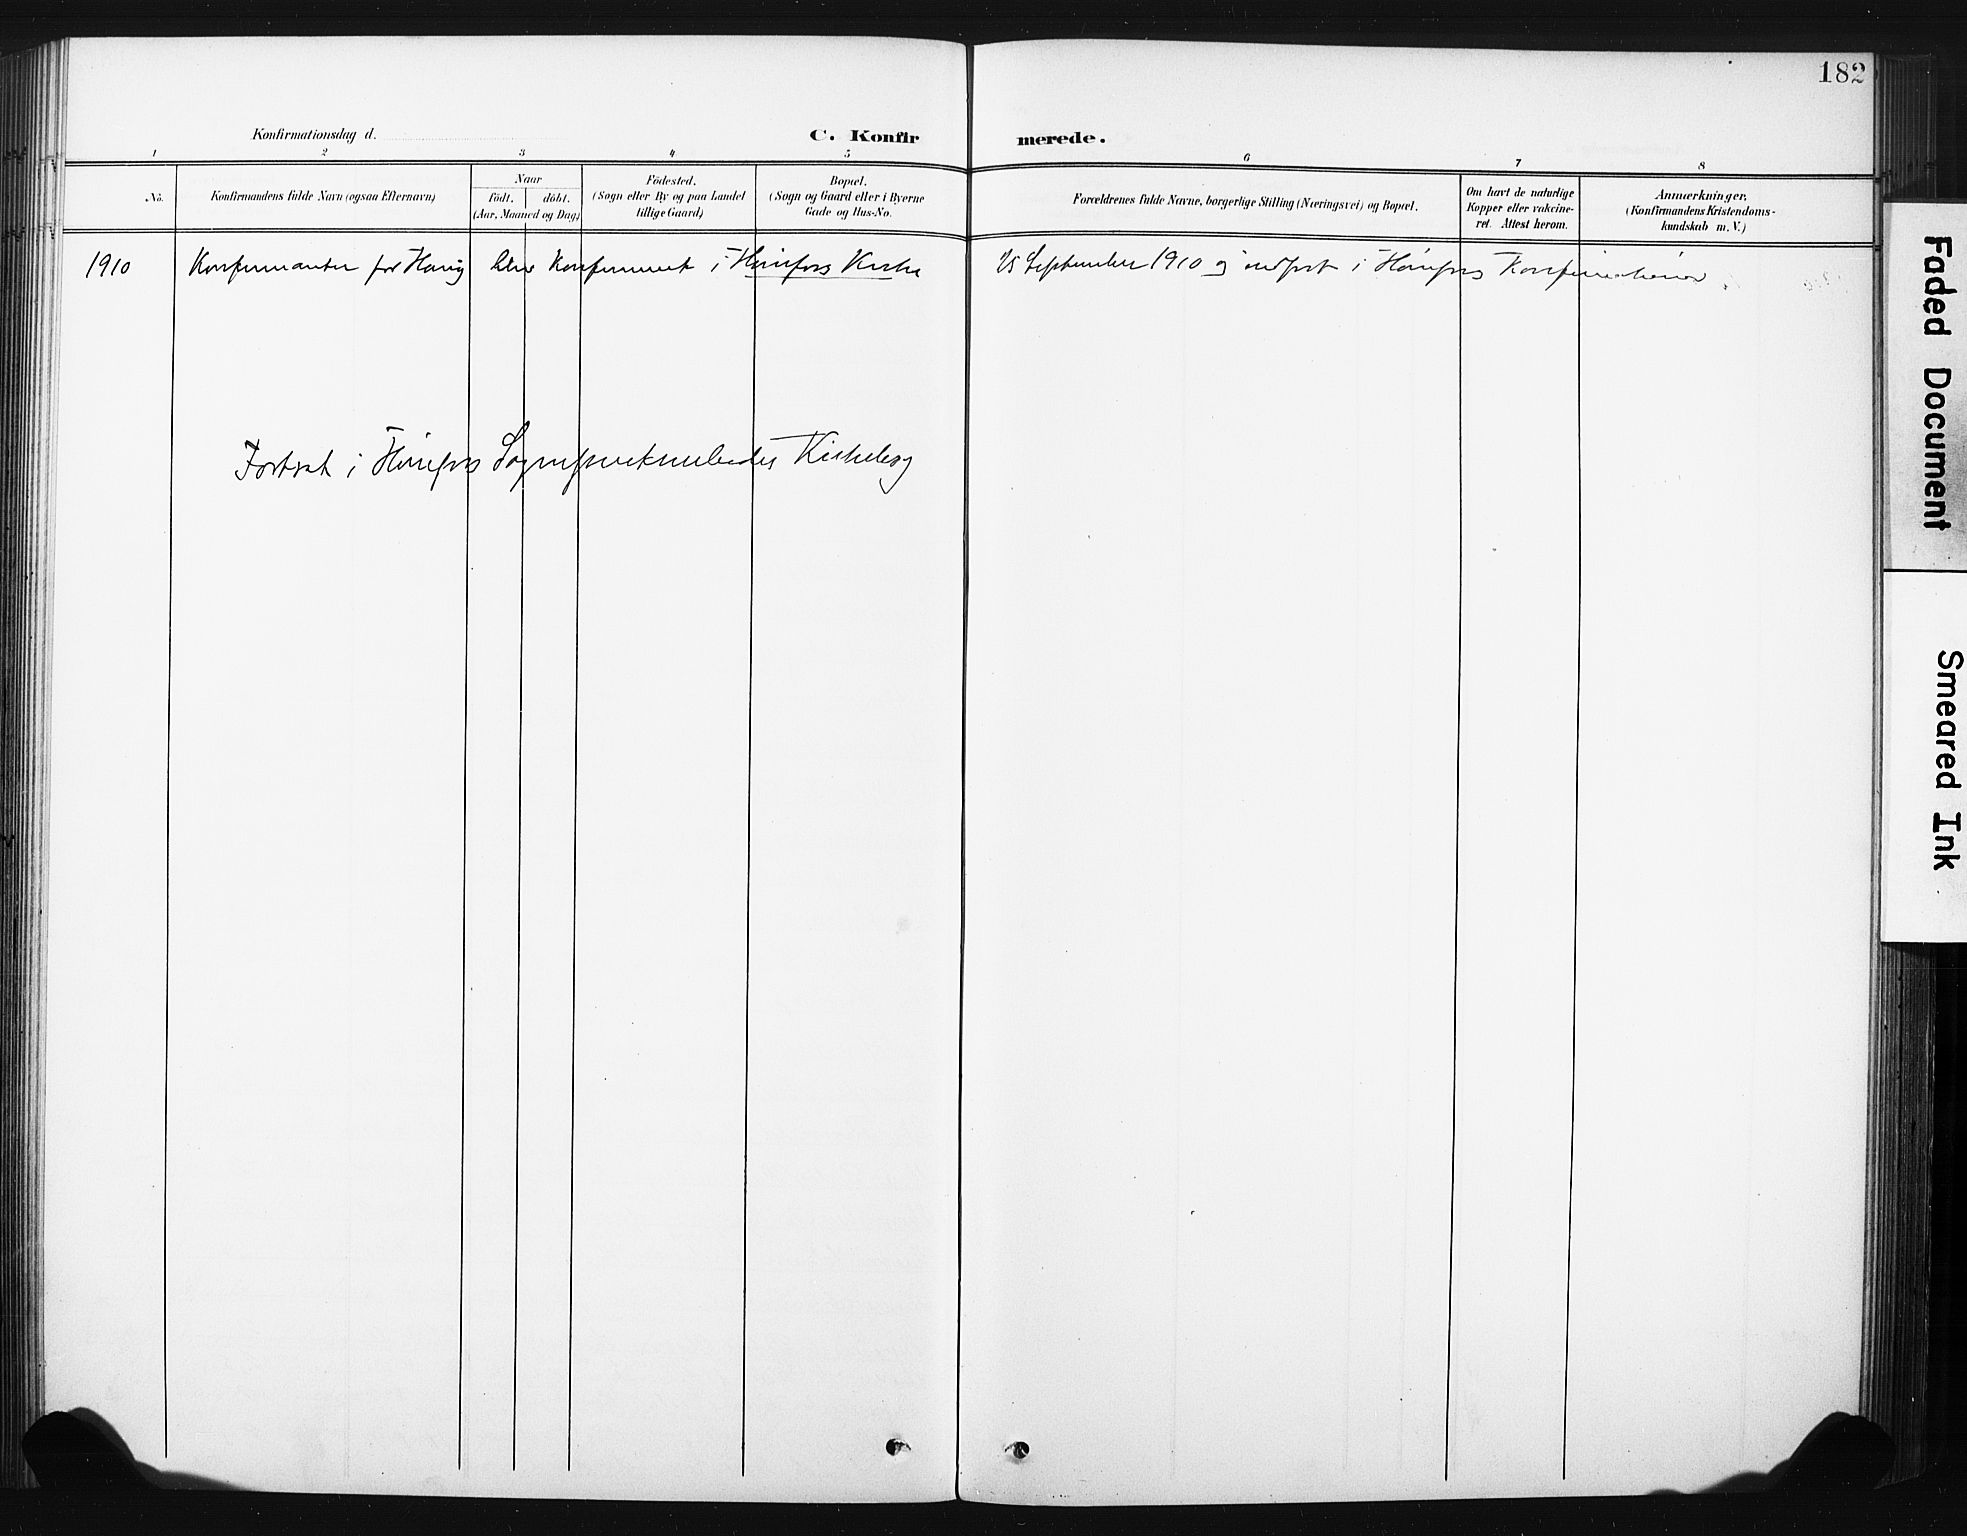 182
Konfirmationsdag d.
C. Konfirmerede.
1 2 3 4 5 6 7 8
No.
Konfirmandens fulde Navn (ogsaa Efternavn)
Naar
födt. döbt.
(Aar, Maaned og Dag)
Födested.
(Sogn eller By og paa Landet
tillige Gaard)
Bopæl.
(Sogn og Gaard eller i Byerne
Gade og Hus-No.
Forældrenes fulde Navne, borgerlige Stilling (Næringsvei) og Bopæl.
Om havt de naturlige
Kopper eller vakcine-
ret. Attest herom.
Anmærkninger.
(Konfirmandens Kristendoms-
kundskab m. V.)
1910 Konfirmanter for Hønefos Kirke 25 September 1910 og indført i Hønefos
Fortsat i Hønefos Kirkebog
Faded Document
Smeared Ink